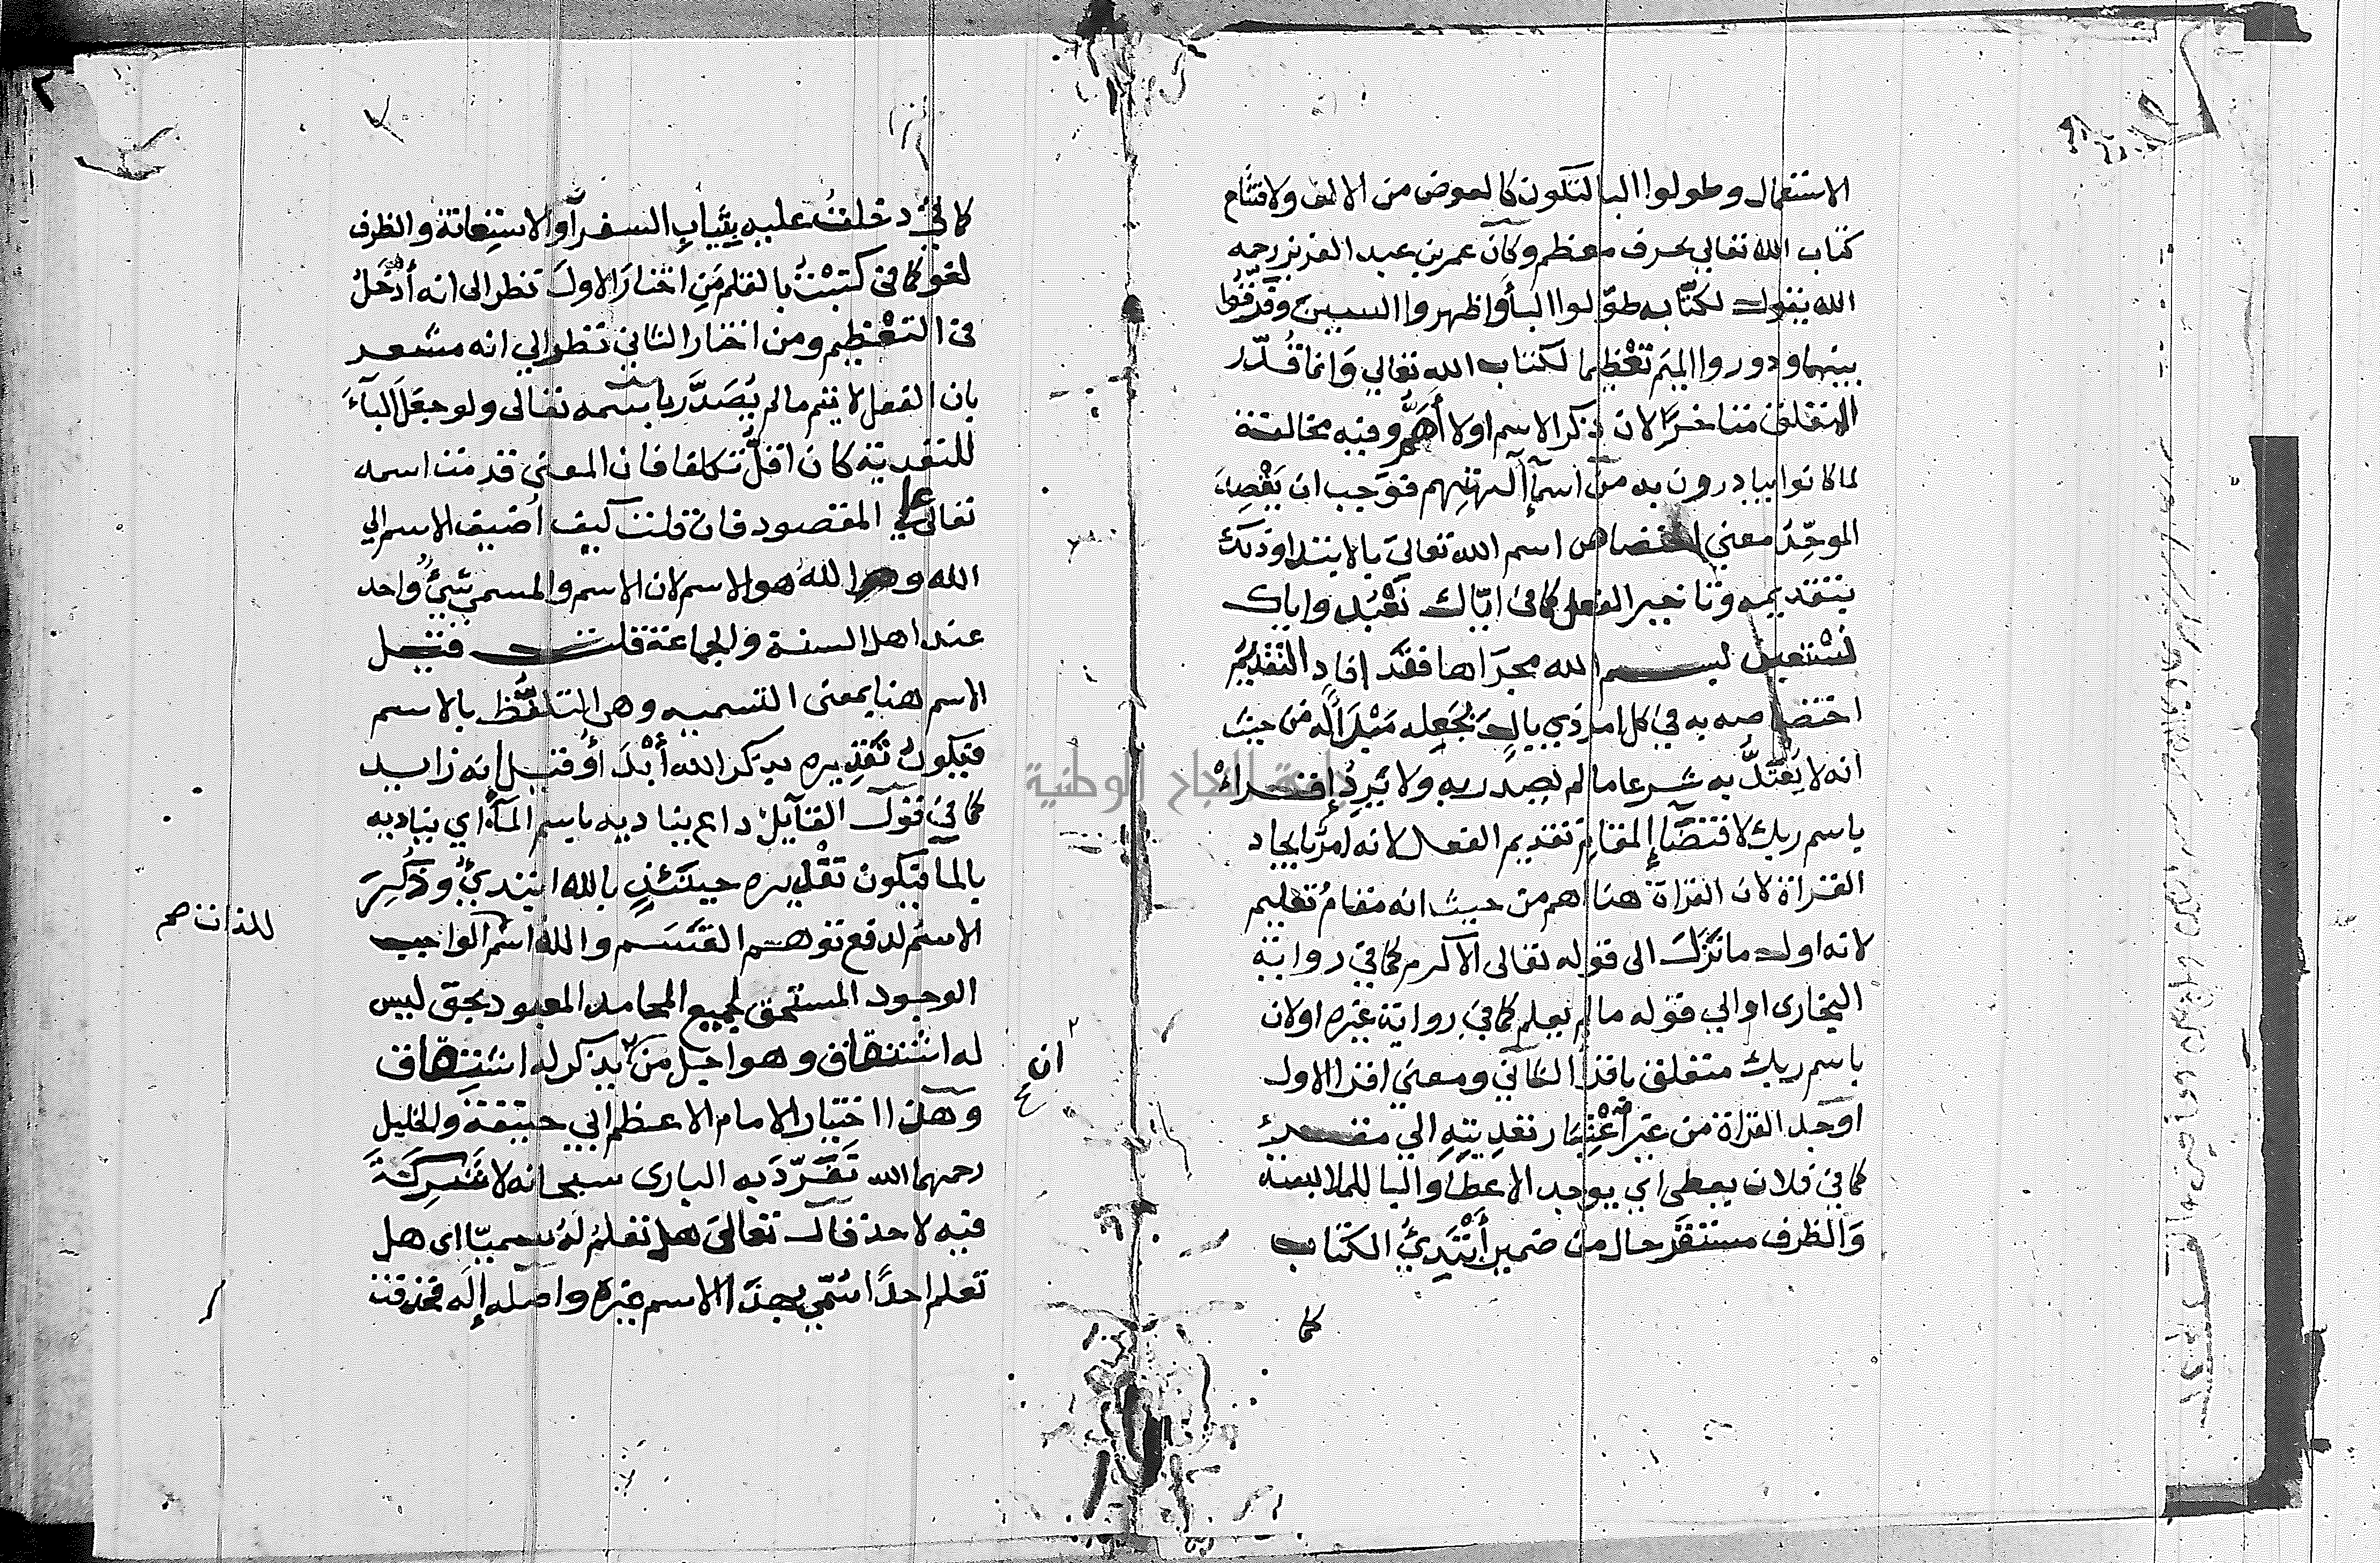 الاستعمال وطولوا البا لتكون كالعوض من الالف ولافتتاح
كتاب الله تعالى بحرف معظم وكان عمر بن عبد العزيز رحمه
الله يقول لكتابه طوّلوا البا واظهروا السين وفرّقوا
بينهما ودوروا الميم تعظيما لكتاب الله تعالي وانما قُدّر
المتعلق متأخرًا لان ذكر الاسم اولا أهمُّ وفيه مخالفة
لما كانوا يبادرون به من اسمآء آلهتهم فوجب ان يقصد
الموحّد معني اختصاص اسم الله تعالى بالابتداوذلك
بتقديمه وتاخير الفعل كما في اياك نعْبُد واياك
نسْتعين بسم الله مجراها فقد افاد التقديمُ
اختصاصه به في كل امر ذي بال بجعله مبدأ له من حيث
انه لا يُعْتَدُّ به شرعا ما لم يصدر به ولا يَرِدُ إقراءْ
باسم ربك لاقتضآء المقام تقديم الفعل لانه امرٌ بايجاد
القراة لان القراة هنا اهم من حيث انه مقامُ تعليم
لانه اول ما نزل الى قوله تعالى الاكرم كما في رواية
البخارى او الي قوله ما لم يعلم كما في رواية غيره او لان
باسم ربك متعلق باقرا الثاني ومعنى اقرا الاول
اوجد القراة من غير اعْتِبَار تعديته الي مقروء
كما في فلان يعطى اي يوجد الاعطا والبا للملابسة
والظرف مستقر حال من ضمير أَبْتَدِئُ الكتاب
كما
كما في دخلت عليه بثياب السفر أو الاستعانة والظرف
لغو كما في كتبْتُ بالقلم من اختار الاول نظر الى انه أدخَلُ
في التعْظيم ومن اختار الثاني نظر الي انه مشعر
بان الفعل لا يتم ما لم يُصَدَّر باسمه تعالى ولو جعل البآء
للتعدية كان اقلّ تكلفا فان المعنى قدمت اسمه
تعالى على المقصود فان قلت كيف أضيف الاسم الي
الله والله هو الاسم لان الاسم والمسمى شيءٌ واحد
عند اهل السنة والجماعة قلت قيل
الاسم هنا بمعنى التسميه وهي التلفّظ بالاسم
فيكونُ تقديره بذكر الله أبْدَأُ وقيل انه زايد
كما في قول القآيل داع يناديه باسم المآء اي يناديه
بالما فيكون تقْديره حينئذٍ بالله ابتديءُ وذُكِرَ
الاسم لدفع توهم القَسَم والله اسم الواجب
للذات صح
الوجود المستحق لجميع المحامد المعبود بحق ليس
له اشتقاق وهو اجل من ان يذكر له اشتقاق
ان
وهذا اختيار الامام الاعظم ابي حنيفة والخليل
رحمهما الله تَفَرّدَ به البارى سبحانه لا شَرِكَةَ
فيه لاحد قال تعالى هل تعلم له سميّا اى هل
تعلم احدًا سُمّي بهذا الاسم غيره واصله إله فحذفت
جامعة النجاح الوطنية